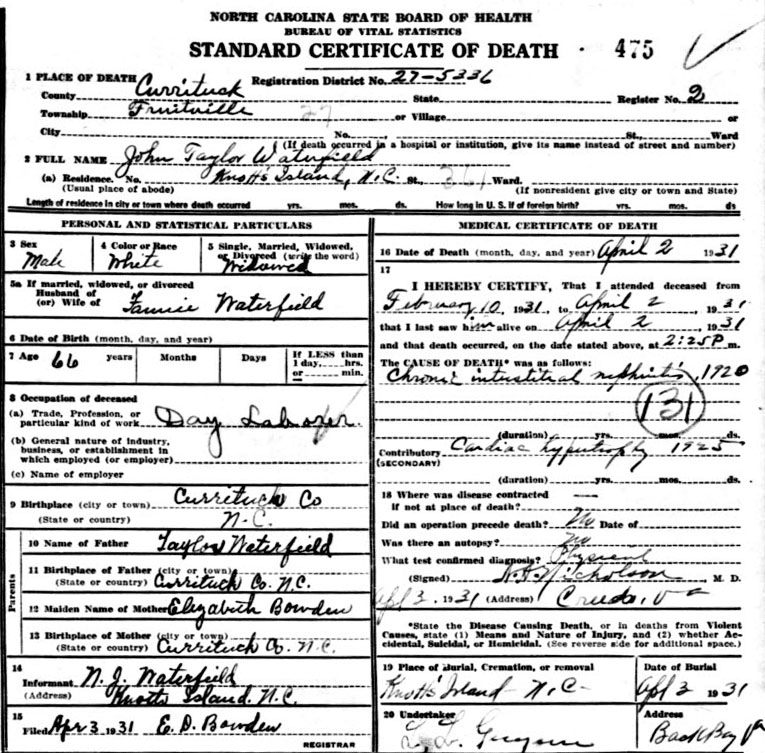 NORTH CAROLINA STATE BOARD OF HEALTH
BUREAU OF VITAL STATISTICS
STANDARD CERTIFICATE OF DEATH 475
1 PLACE OF DEATH Registration District No. 27-5336
County Currituck State Register No. 2
Township Fruitville 27 or Village or
City No. St., Ward
(If death occurred in a hospital or institution, give its name instead of street and number)
2 FULL NAME John Taylor Waterfield
(a) Residence. No. Knotts Island, N.C. St., 361 Ward.
(Usual place of abode) (If nonresident give city or town and State)
Length of residence in city or town where death occurred yrs. mos. ds. How long in U. S. if of foreign birth? yrs. mos. ds
PERSONAL AND STATISTICAL PARTICULARS
3 Sex 4 Color or Race 5 Single, Married, Widowed, or Divorced (write the word)
Male White Widowed
5a If married, widowed, or divorced
Husband of
(or) Wife of Fannie Waterfield
6 Date of Birth (month, day, and year)
7 Age 66 years Months Days If LESS than 1 day, hrs. or min.
8 Occupation of deceased
(a) Trade, Profession, or
particular kind of work Day Laborer
(b) General nature of industry,
business, or establishment in
which employed (or employer)
(c) Name of employer
9 Birthplace (city or town) Currituck Co
(State or country) N.C.
Parents
10 Name of Father Taylor Waterfield
11 Birthplace of Father (city or town)
(State or country) Currituck Co. N.C.
12 Maiden Name of Mother Elizabeth Bowden
13 Birthplace of Mother (city or town)
(State or country) Currituck Co. N.C.
14
Informant N. J. Waterfield
(Address) Knotts Island. N.C.
15
Filed Apr 3 1931 E. D. Bowden
REGISTRAR
MEDICAL CERTIFICATE OF DEATH
16 Date of Death (month, day, and year) April 2 1931
17
I HEREBY CERTIFY, That I attended deceased from
February 10, 1931, to April 2, 1931
that I last saw him alive on April 2, 1931
and that death occurred, on the date stated above, at 2:25P m.
The CAUSE OF DEATH* was as follows:
Chronic interstitial nephritis, 1920
131
(duration) yrs. mos. ds.
Contributory Cardiac hypertrophy 1925
(SECONDARY)
(duration) yrs. mos. ds.
18 Where was disease contracted
if not at place of death?
Did an operation precede death? No Date of
Was there an autopsy? No
What test confirmed diagnosis? Physical
(Signed) Nicholson, M. D.
Apl 3, 1931 (Address) Creeds, Va
*State the Disease Causing Death, or in deaths from Violent
Causes, state (1) Means and Nature of Injury, and (2) whether Ac-
cidental, Suicidal, or Homicidal. (See reverse side for additional space.)
19 Place of Burial, Cremation, or removal Date of Burial
Knotts Island N.C. Apl 3 1931
20 Undertaker Address
Back Bay Va